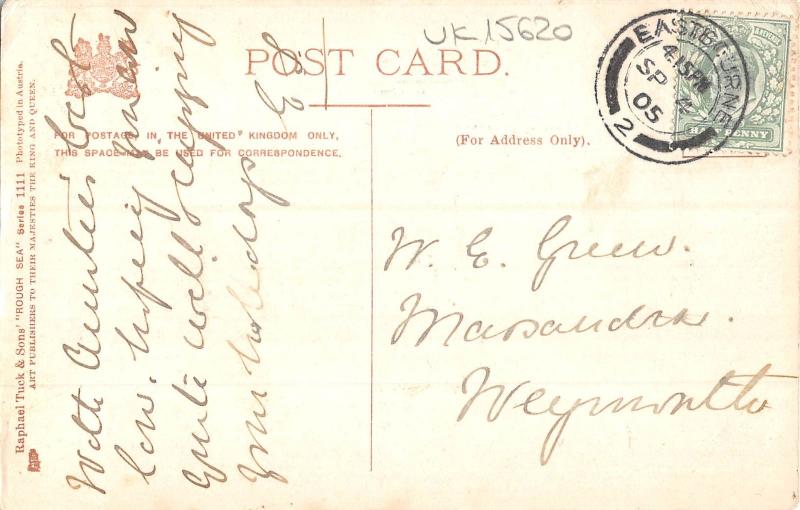 UK15620
POST CARD.
EASTBOURNE
4.15PM
SP 4
05
2
HALFPENNY
FOR POSTAGE IN THE UNITED KINGDOM ONLY,
THIS SPACE MAY BE USED FOR CORRESPONDENCE.
(For Address Only).
Raphael Tuck & Sons' "ROUGH SEA" Series 1111 Phototyped in Austria.
ART PUBLISHERS TO THEIR MAJESTIES THE KING AND QUEEN.
With Auntie's best
love, hoping you are
quite well & enjoying
your holidays
W. E. Green.
Massandra.
Weymouth